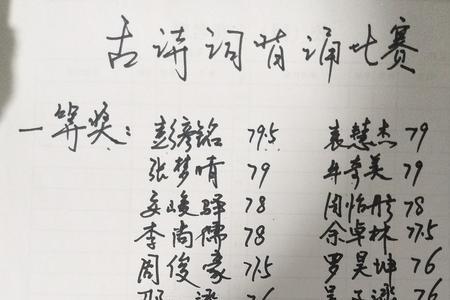 古诗词背诵比赛
一等奖: 彭彦铭 79.5 袁慧杰 79
张梦晴 79 牟奇美 79
姜峻驿 78 周怡彤 78
李尚儒 78 余卓林 77.5
周俊豪 77.5 罗昊坤 76
76 76